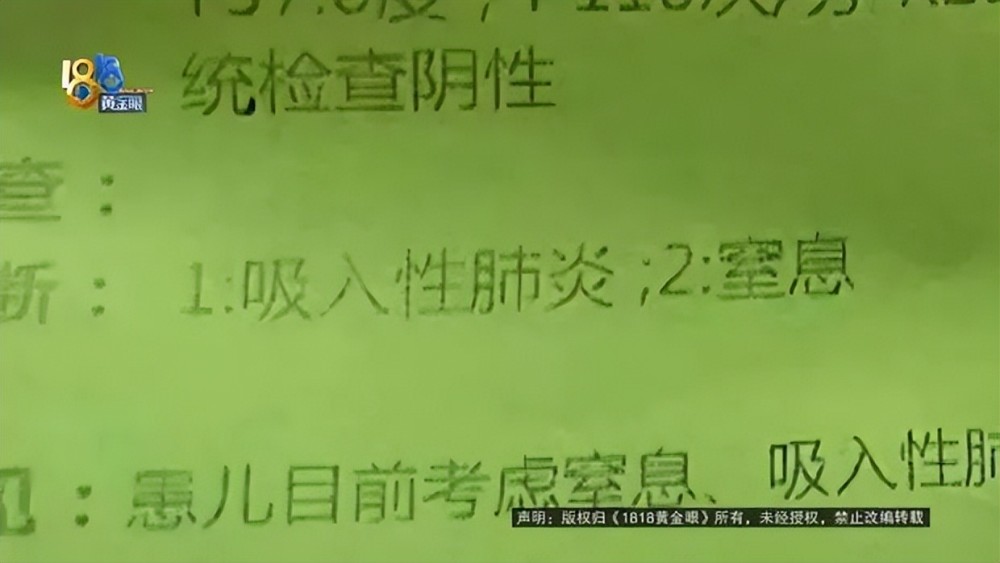 统检查阴性
1818
黄金眼
查：
断：1:吸入性肺炎;2:窒息
见：患儿目前考虑窒息、吸入性肺
声明：版权归《1818黄金眼》所有，未经授权，禁止改编转载